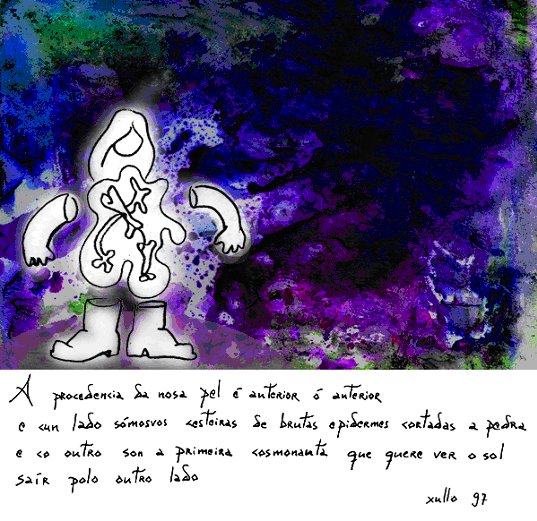 A procedencia da nosa pel é anterior ó anterior
e cun lado sómosvos cesteiras de brutas epidermes cortadas a pedra
e co outro son a primeira cosmonauta que quere ver o sol
saír polo outro lado
xullo 97